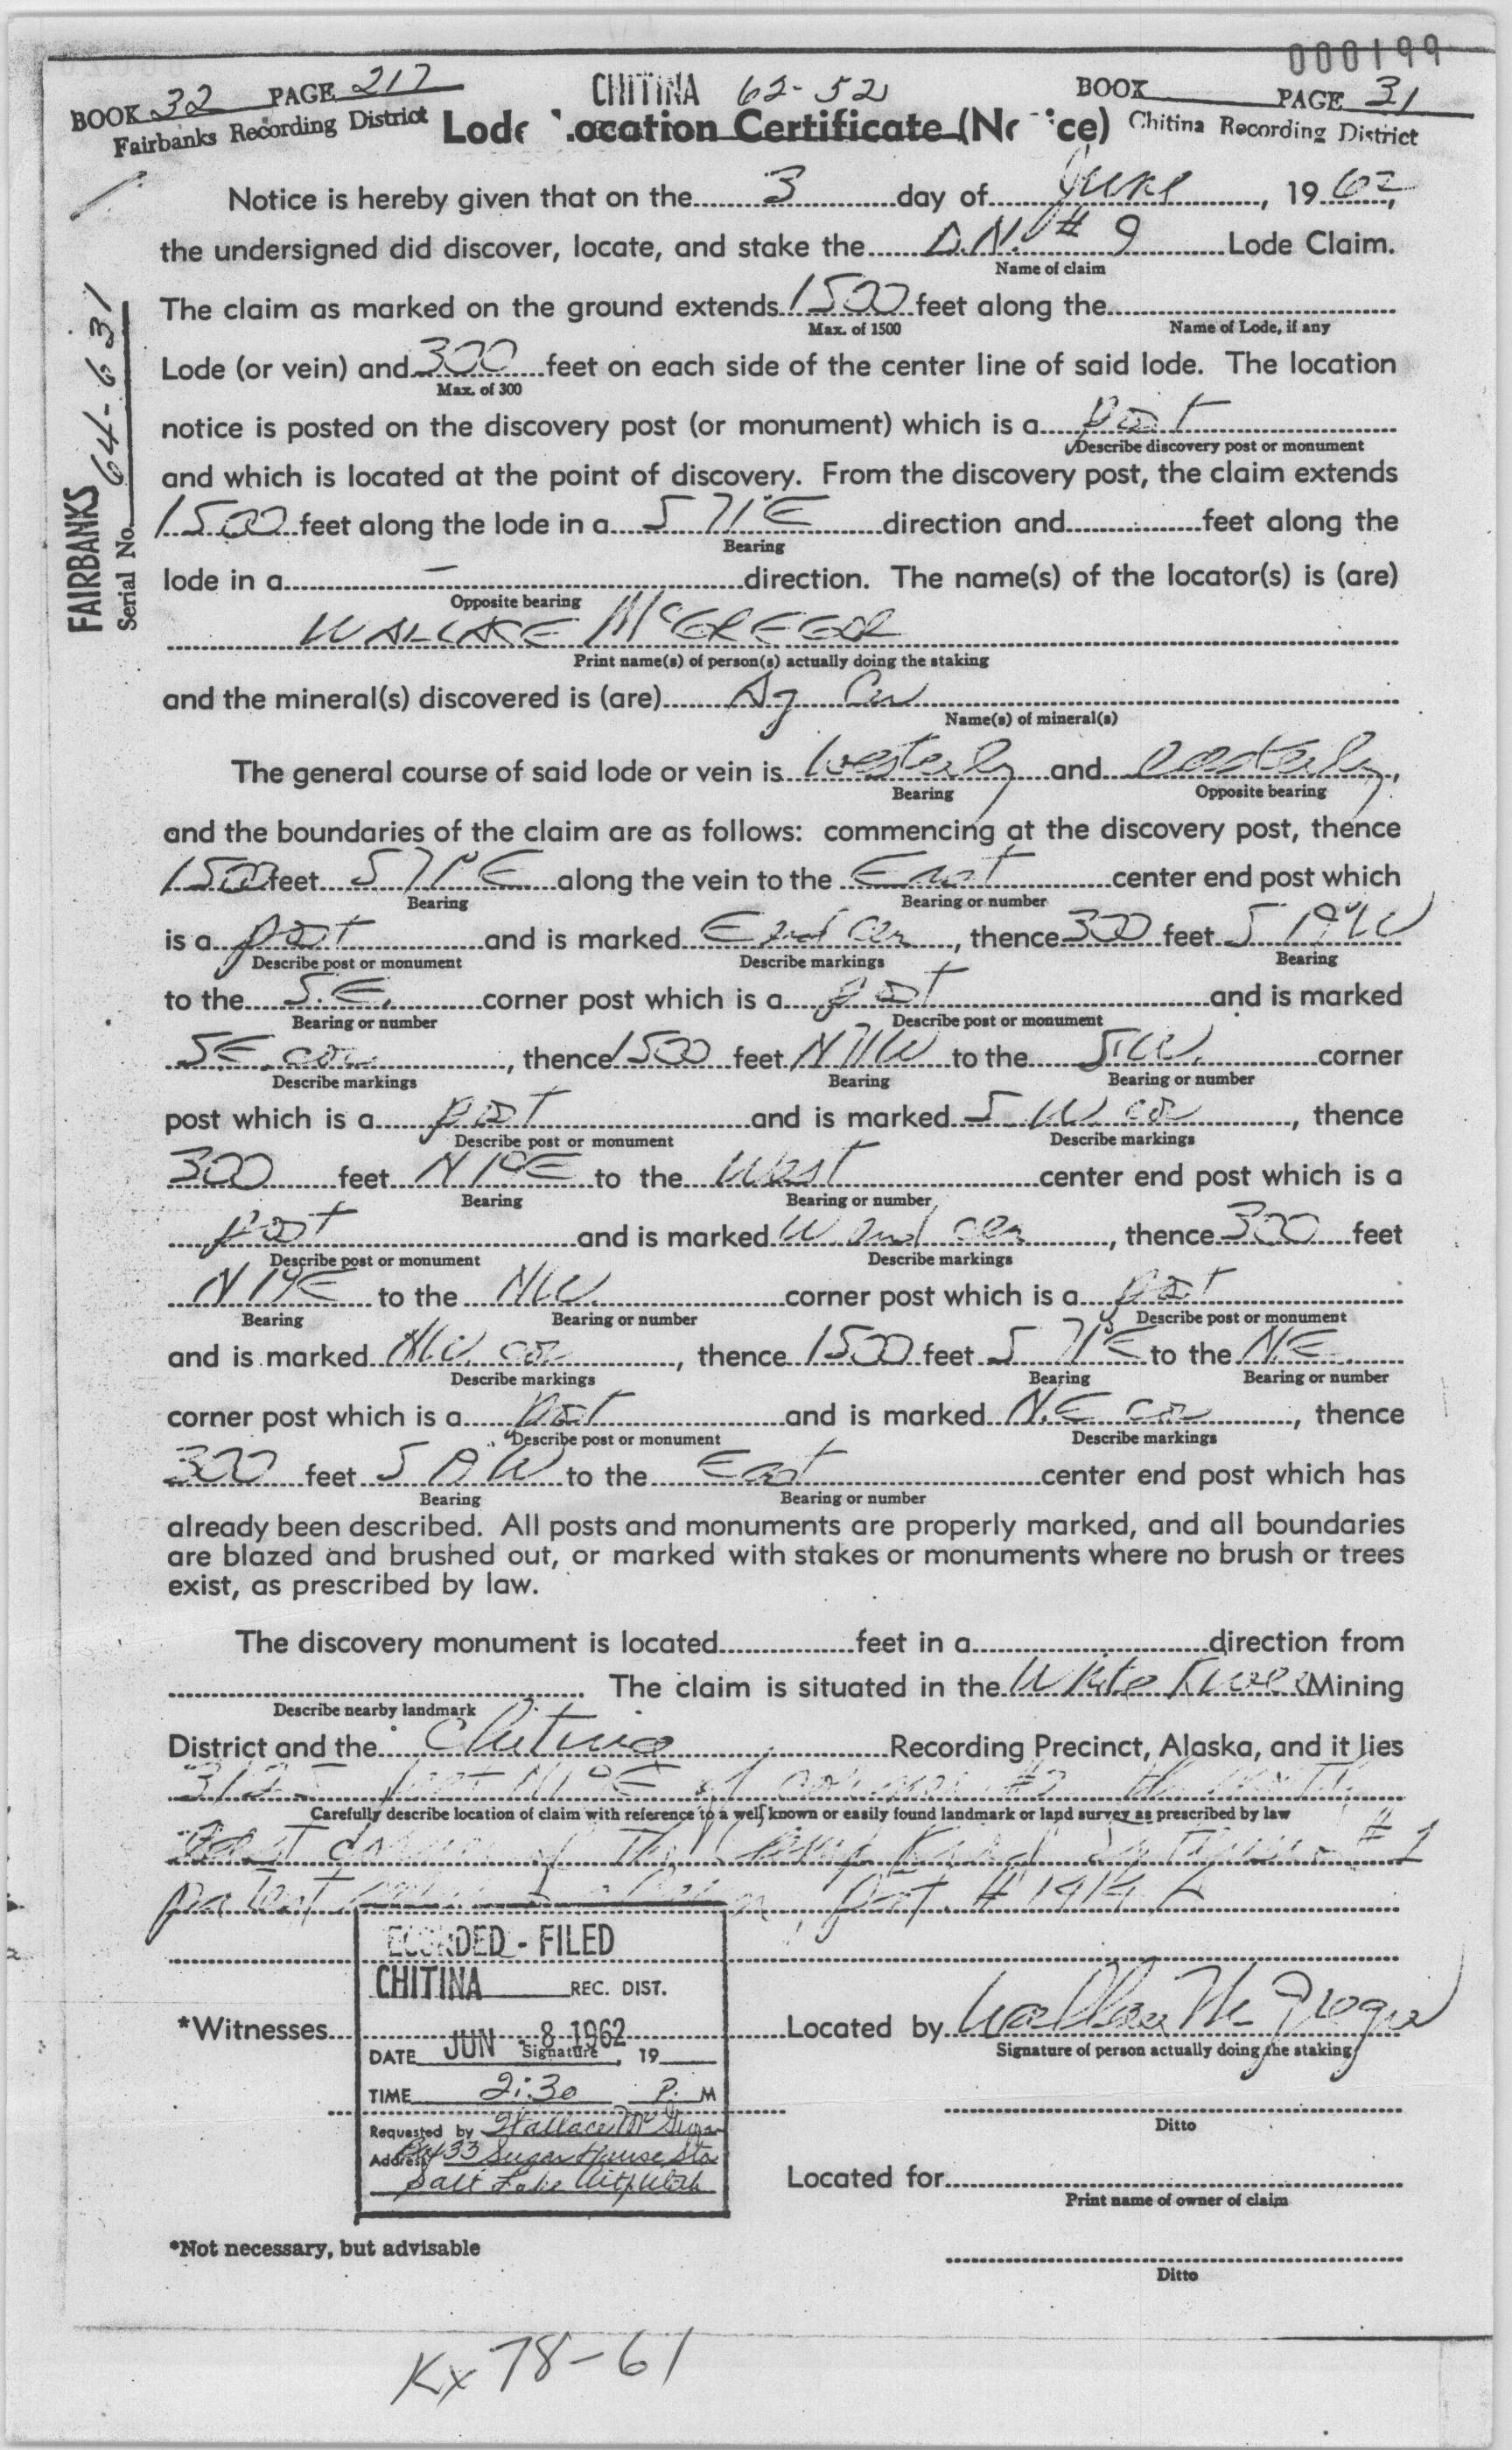 000199
BOOK 32 PAGE 217
CHITINA 62-52
BOOK PAGE 31
Fairbanks Recording District
Lode Location Certificate (Notice)
Chitina Recording District
Notice is hereby given that on the 3 day of June, 1962,
the undersigned did discover, locate, and stake the D.N. # 9 Lode Claim.
Name of claim
The claim as marked on the ground extends 1500 feet along the
Max. of 1500 Name of Lode, if any
Lode (or vein) and 300 feet on each side of the center line of said lode. The location
Max. of 300
notice is posted on the discovery post (or monument) which is a post
Describe discovery post or monument
and which is located at the point of discovery. From the discovery post, the claim extends
1500 feet along the lode in a S 71° E direction and feet along the
Bearing
lode in a - direction. The name(s) of the locator(s) is (are)
Opposite bearing
WALLACE McGREGOR
Print name(s) of person(s) actually doing the staking
and the mineral(s) discovered is (are) Ag Cu
Name(s) of mineral(s)
The general course of said lode or vein is westerly and easterly,
Bearing Opposite bearing
and the boundaries of the claim are as follows: commencing at the discovery post, thence
1500 feet S 71° E along the vein to the East center end post which
Bearing Bearing or number
is a post and is marked E end cen, thence 300 feet S 19° W
Describe post or monument Describe markings Bearing
to the S.E. corner post which is a post and is marked
Bearing or number Describe post or monument
SE cor, thence 1500 feet N 71 W to the S.W. corner
Describe markings Bearing Bearing or number
post which is a post and is marked S W co, thence
Describe post or monument Describe markings
300 feet N 19° E to the West center end post which is a
Bearing Bearing or number
post and is marked W end cen, thence 300 feet
Describe post or monument Describe markings
N 19 E to the NW corner post which is a post
Bearing Bearing or number Describe post or monument
and is marked NW cor, thence 1500 feet S 71° E to the N.E.
Describe markings Bearing Bearing or number
corner post which is a post and is marked N.E co, thence
Describe post or monument Describe markings
300 feet S 19 W to the East center end post which has
Bearing Bearing or number
already been described. All posts and monuments are properly marked, and all boundaries
are blazed and brushed out, or marked with stakes or monuments where no brush or trees
exist, as prescribed by law.
The discovery monument is located feet in a direction from
The claim is situated in the White River Mining
Describe nearby landmark
District and the Chitina Recording Precinct, Alaska, and it lies
3125 feet N 19° E of corner #2 the north
Carefully describe location of claim with reference to a well known or easily found landmark or land survey as prescribed by law
East corner of the # 1
patent
RECORDED - FILED
CHITINA REC. DIST.
*Witnesses
Signature
DATE JUN 8 1962, 19
TIME 2:30 P. M
Requested by Wallace McGregor
Address Bx 433 Sugar House Sta
Salt Lake City, Utah
Located by Wallace McGregor
Signature of person actually doing the staking
Ditto
Located for
Print name of owner of claim
*Not necessary, but advisable
Ditto
Kx 78-61
FAIRBANKS
Serial No. 64-631